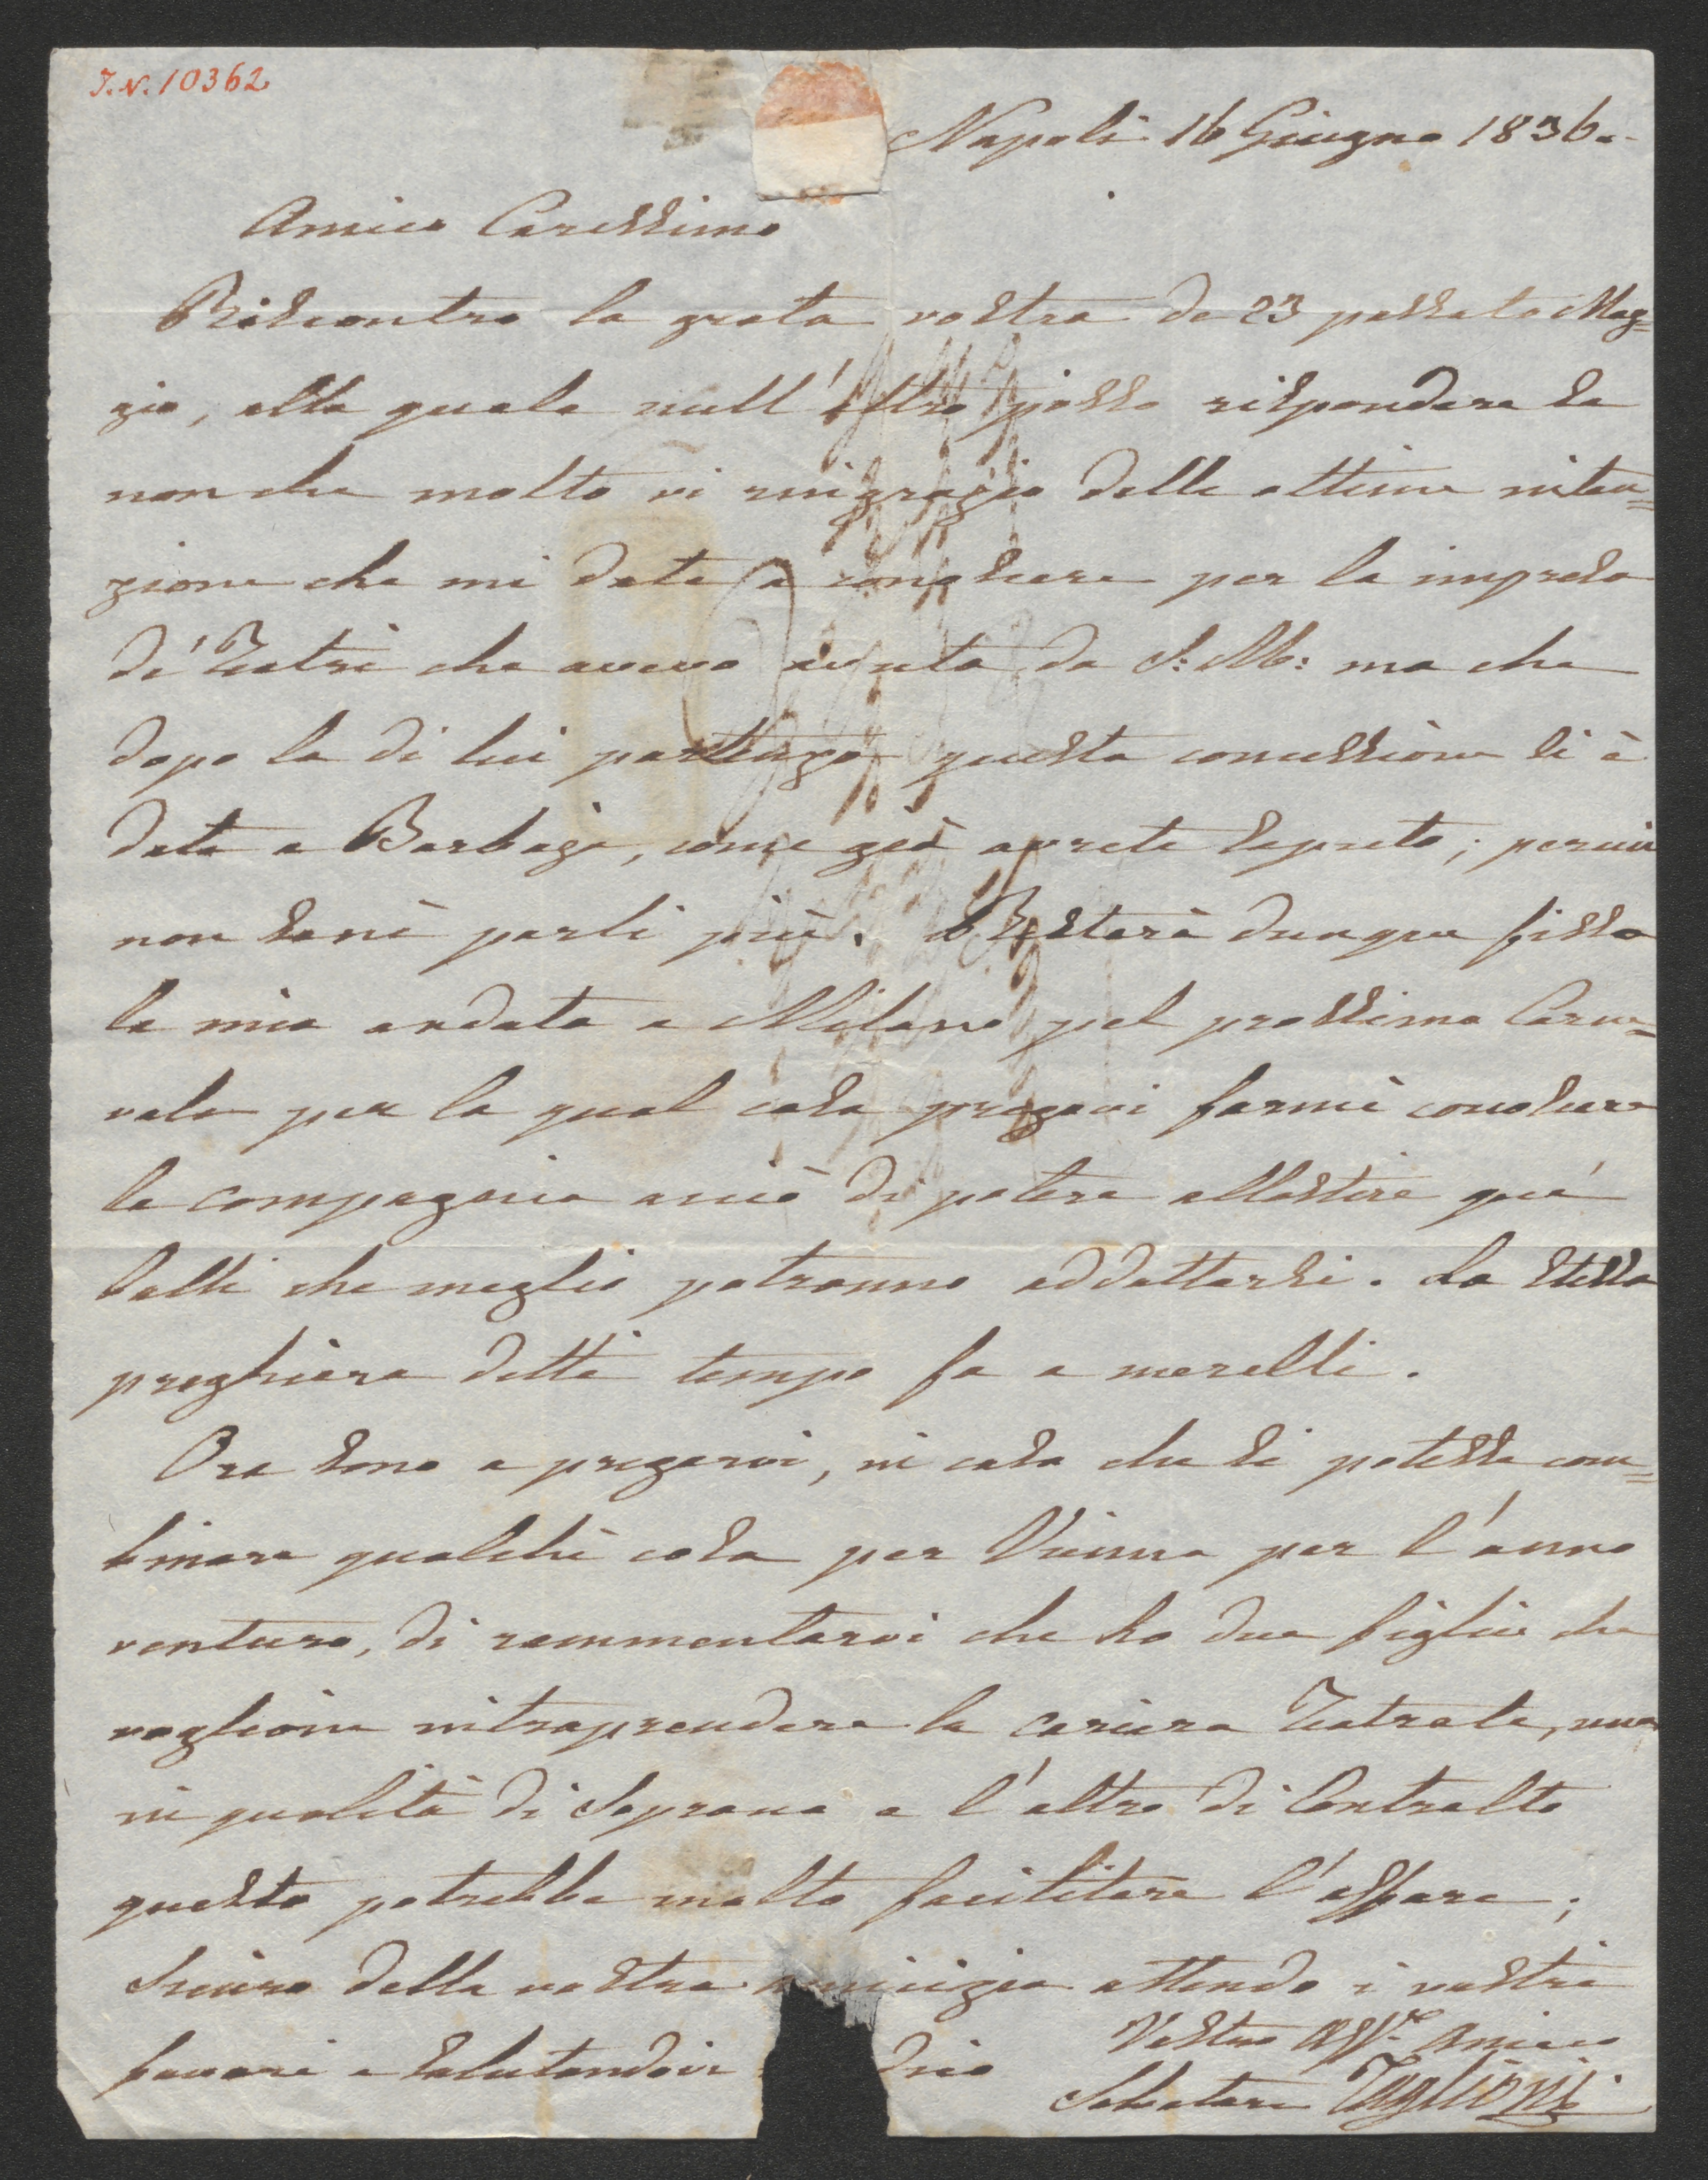 I.N. 10362
Napoli 16 Giugno 1836.
Amico Carissimo
Riscontro la grata vostra de 23 passato Mag=
gio, alla quale null'altro posso rispondere se
non che molto vi ringrazio delle ottime inten=
zione che mi date a conoscere per la impresa
de' Teatri che avevo avuta da S: M: ma che
dopo la di lui partenza questa concessione si è
data a Barbaja, come già avrete saputo; percui
non sene parli più. Resterà dunque fissa
la mia andata a Milano pel prossimo Carne=
vale per la qual cosa pregovi farmi conoscere
la compagnia acciò di potere allestire que'
balli che meglio potranno addattarsi. La stessa
preghiera detti tempo fa a merelli.
Ora sono a pregarvi, in caso che si potesse com=
binare qualche cosa per Vienna per l'anno
venturo, di rammentarvi che ho due figlie che
vogliono intraprendere la cariera Teatrale, una
in qualità di Soprano e l'altra di Contralto
questo potrebbe molto facilitare l'affare;
Sicuro della vostra amicizia attendo i vostri
favori e salutandovi dico
Vostro Aff.mo Amico
Salvatore Taglioni